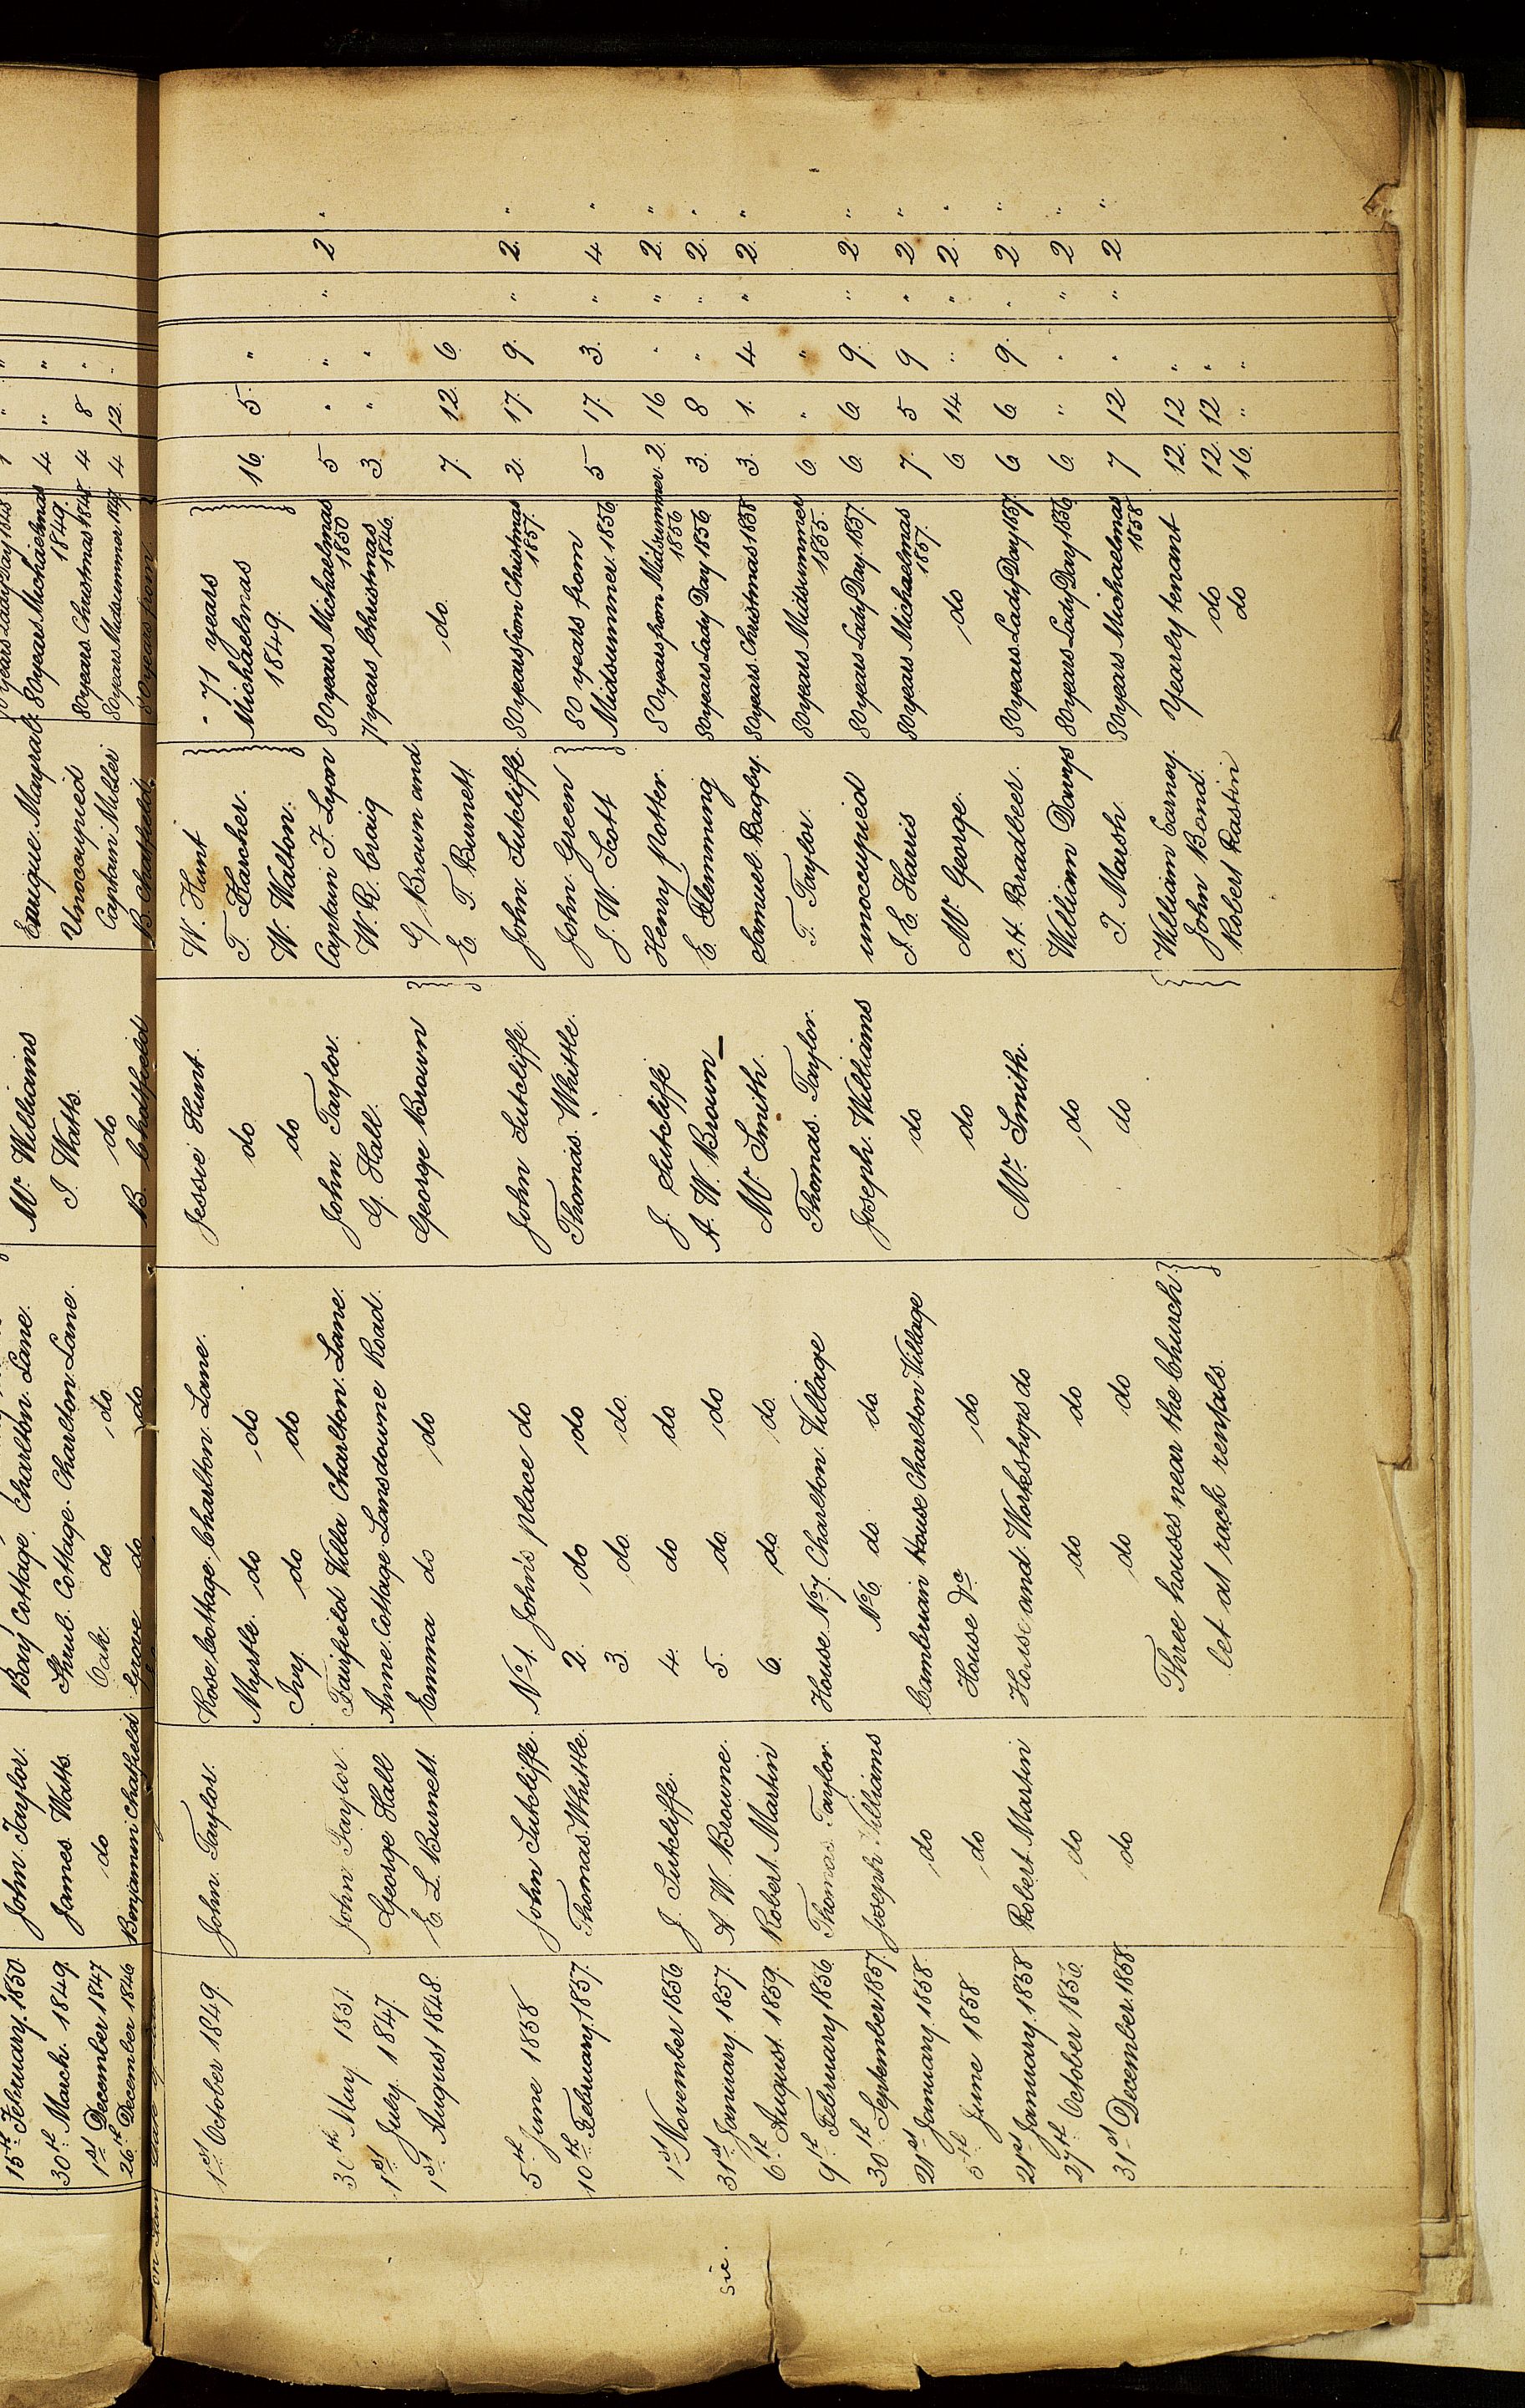 15th February 1850 John Taylor. Bay Cottage Charlton Lane. Mr Williams Enrique Mayral
30th March. 1849. James Watts. Shrub. Cottage. Charlton Lane. J. Watts. Unoccupied 80 years Michaelmas 1849. 4 " "
1st December 1847 do Oak. do do do Captain Miller 80 years Christmas 1848. 4 8 "
26th December 1846 Benjamin Chatfield Grove do do B. Chatfield B. Chatfield 80 years Midsummer 1847 4 12. "
80 years from
1st October 1849. John Taylor. Rose Cottage Charlton Lane. Jessie Hunt. W. Hunt
Myrtle. do do do T. Karcher. 71 years Michaelmas 1849. 16. 5. "
Ivy do do do W. Walton.
30th May 1851. John Taylor. Fairfield Villa Charlton Lane. John Taylor. Captain F. Lyon 80 years Michaelmas 1850 5 " " " 2 "
1st July. 1847. George Hall Anne Cottage Lansdowne Road. G. Hall. W. R. Craig 71 years Christmas 1846. 3. " "
1st August 1848. E. L. Burnett. Emma do do George Brown G. Brown and
E. T. Burnett. do. 7. 12. 6.
5th June 1858 John Sutcliffe. No 1. John's place do John Sutcliffe. John Sutcliffe 80 years from Christmas 1857. 2. 17. 9. " 2. "
10th February. 1857. Thomas Whittle. 2. do do Thomas. Whittle. John Green 80 years from
3. do. do. J. W. Scott Midsummer. 1856. 5 17. 3. " 4 "
1st November 1856 J. Sutcliffe. 4. do do J. Sutcliffe Henry Potter. 80 years from Midsummer. 1856 2. 16 " " 2. "
31st January. 1857. A W. Browne. 5. do. do A. W. Brown E. Flemming 80 years Lady Day 1856 3. 8 " " 2. "
sic.
6th August. 1859. Robert Martin 6. do. do. Mr Smith. Samuel Bagley. 80 years Christmas 1858 3. 1. 4 " 2. "
9th February 1856. Thomas Taylor. House No 7. Charlton Village Thomas. Taylor. T. Taylor. 80 years Midsummer 1855. 6. " "
30th September 1857. Joseph Williams No 6. do. do. Joseph. Williams unoccupied 80 years Lady Day. 1857. 6. 6. 9. " 2 "
21st January. 1858. do Cambrian House Charlton Village do J. E. Harris 80 years Michaelmas 1857. 7. 5 9 " 2 "
5th June 1858 do House Do do do Mr George. do 6 14. " " 2. "
21st January. 1858 Robert Martin House and Workshops do Mr Smith. C. H. Bradbeer. 80 years Lady Day 1857. 6 6. 9. " 2 "
27th October 1856. do do do do William Davys 80 years Lady Day 1856 6. " " " 2 "
31st December. 1858 do do do do J. Marsh. 80 years Michaelmas 1858 7 12 " " 2 "
Three houses near the Church. William Earney. Yearly tenant 12. 12 "
let at rack rentals. John Bond. do 12. 12 "
Robert Rastin do 16. " "